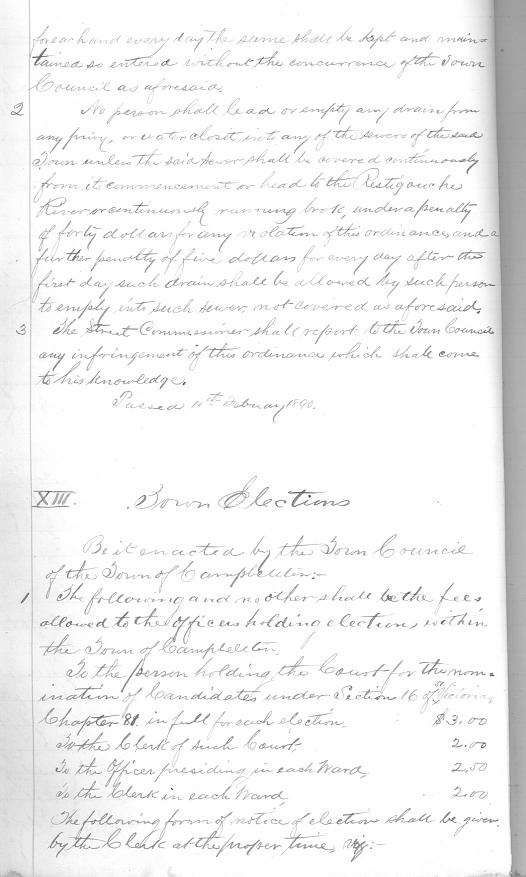 for each and every day the same shall be kept and main=
tained so entered without the concurrence of the Town
Council as aforesaid.
2 No person shall lead or empty any drain from
any privy, or water closet, into any of the sewers of the said
Town unless the said sewer shall be covered continuously
from it commencement or head to the Restigouche
River or continuously running brok, under a penalty
of forty dollars for any violation of this ordinance, and a
further penalty of five dollars for every day after the
first day such drain shall be allowed by such person
to empty into such sewer, not covered as aforesaid.
3 The Street Commissioner shall report to the Town Council
any infringement of this ordinance which shall come
to his knowledge.
Passed 10th February 1890.
XIII. Town Elections
Be it enacted by the Town Council
of the Town of Campbellton:-
1 The following and no other shall be the fees
allowed to the Officers holding elections within
the Town of Campbellton.
To the person holding the Court for the nom=
ination of Candidates under Section 16 of Victoria,
Chapter 81. in full for each election $3.00
To the Clerk of such Court. 2.00
To the Officer presiding in each Ward, 2.50
To the Clerk in each Ward, 2.00
The following form of notice of election shall be given
by the Clerk at the proper time, viz:-